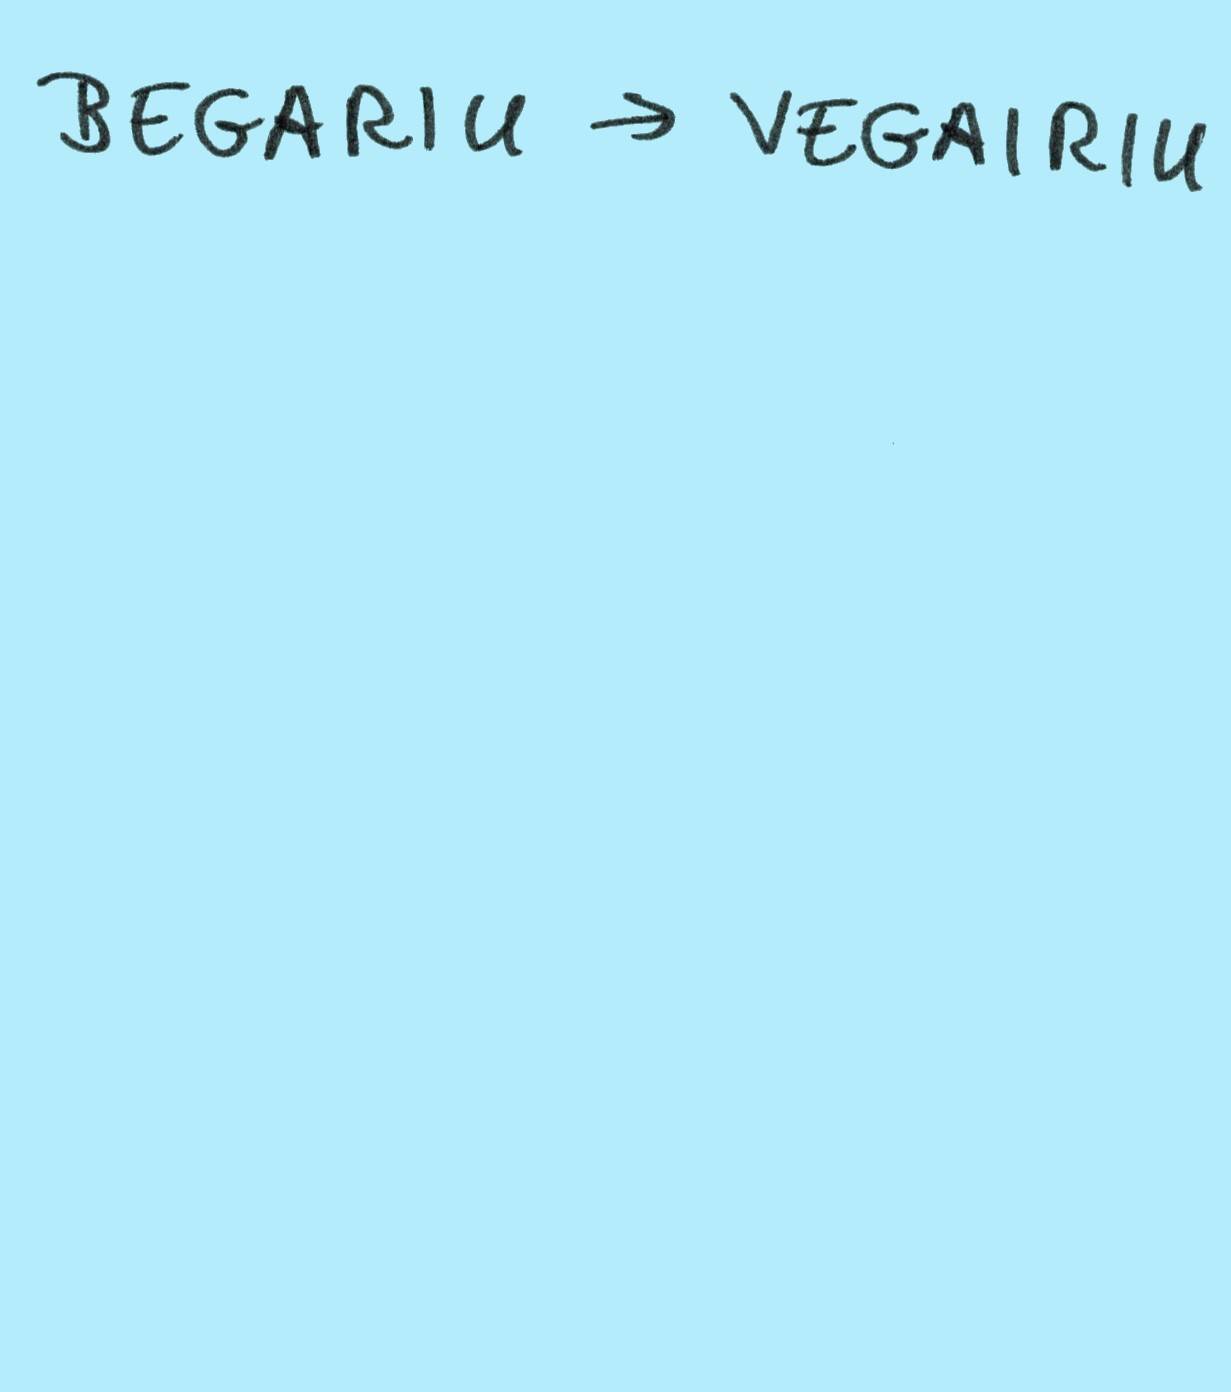 BEGARIU → VEGAIRIU